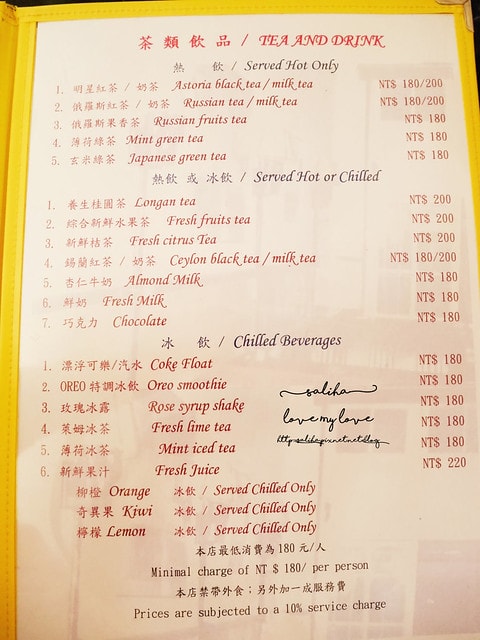 茶類飲品 / TEA AND DRINK
熱 飲 / Served Hot Only
1. 明星紅茶 / 奶茶 Astoria black tea / milk tea NT$ 180/200
2. 俄羅斯紅茶 / 奶茶 Russian tea / milk tea NT$ 180/200
3. 俄羅斯果香茶 Russian fruits tea NT$ 180
4. 薄荷綠茶 Mint green tea NT$ 180
5. 玄米綠茶 Japanese green tea NT$ 180
熱飲 或 冰飲 / Served Hot or Chilled
1. 養生桂圓茶 Longan tea NT$ 200
2. 綜合新鮮水果茶 Fresh fruits tea NT$ 200
3. 新鮮桔茶 Fresh citrus Tea NT$ 200
4. 錫蘭紅茶 / 奶茶 Ceylon black tea / milk tea NT$ 180/200
5. 杏仁牛奶 Almond Milk NT$ 180
6. 鮮奶 Fresh Milk NT$ 180
7. 巧克力 Chocolate NT$ 180
冰 飲 / Chilled Beverages
1. 漂浮可樂/汽水 Coke Float NT$ 180
2. OREO特調冰飲 Oreo smoothie NT$ 180
3. 玫瑰冰露 Rose syrup shake NT$ 180
4. 萊姆冰茶 Fresh lime tea NT$ 180
5. 薄荷冰茶 Mint iced tea NT$ 180
6. 新鮮果汁 Fresh Juice NT$ 220
柳橙 Orange 冰飲 / Served Chilled Only
奇異果 Kiwi 冰飲 / Served Chilled Only
檸檬 Lemon 冰飲 / Served Chilled Only
本店最低消費為180元/人
Minimal charge of NT $ 180/ per person
本店禁帶外食；另外加一成服務費
Prices are subjected to a 10% service charge
saliha
love my love
http:saliha.pixnet.net/blog